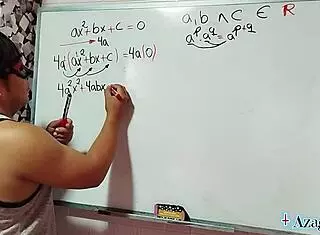 ax² + bx + c = 0
4a
4a¹(ax² + bx + c) = 4a(0)
4a²x² + 4abx
a, b ∧ c ∈ R
aᵖ · a^q = a^(p+q)
+ Azag